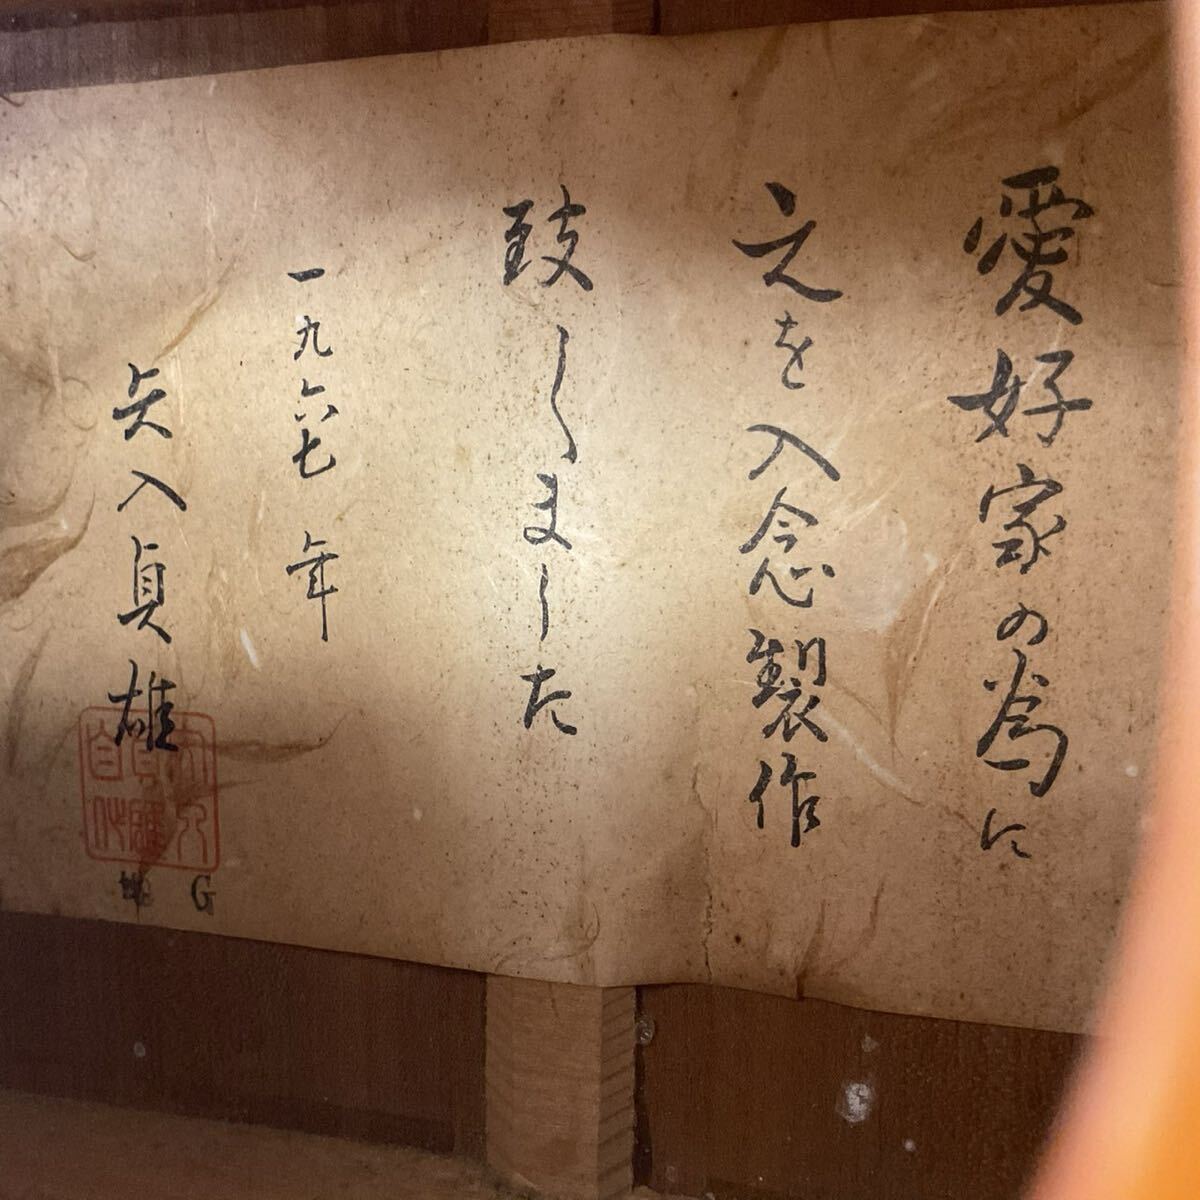 愛好家の為に
之を入念製作
致しました
一九六七年
矢入貞雄
G